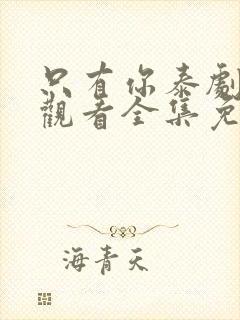 只有你泰劇
觀看全集免
海青天